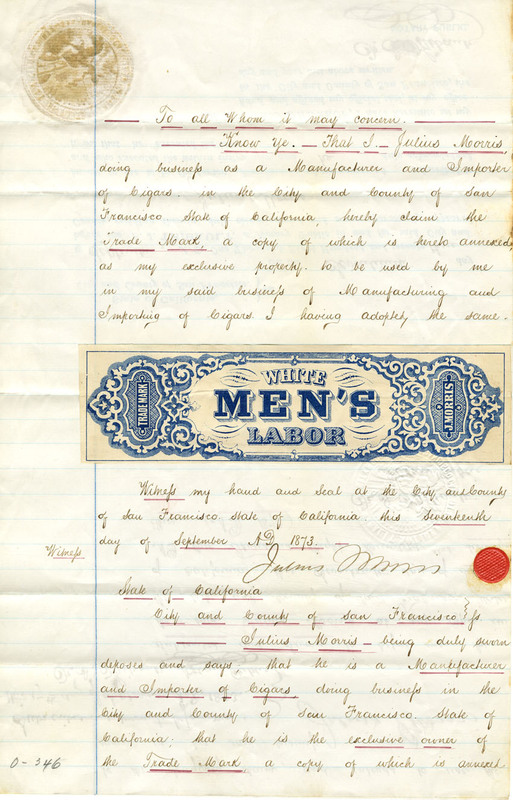 To all Whom it may concern.
Know Ye. That I Julius Morris,
doing business as a Manufacturer and Importer
of Cigars. in the City and County of San
Francisco, State of California, hereby claim the
Trade Mark, a copy of which is hereto annexed
as my exclusive property. to be used by me
in my said business of Manufacturing and
Importing of Cigars. I having adopted the same.
TRADE MARK
WHITE
MEN'S
LABOR
J. MORRIS
Witness my hand and Seal at the City and County
of San Francisco State of California this Seventeenth
day of September A.D. 1873.
Witness
Julius Morris
State of California
City and County of San Francisco } ss
Julius Morris being duly sworn
deposes and says, that he is a Manufacturer
and Importer of Cigars, doing business in the
City and County of San Francisco. State of
California. that he is the exclusive owner of
0-346
the Trade Mark a copy of which is annexed